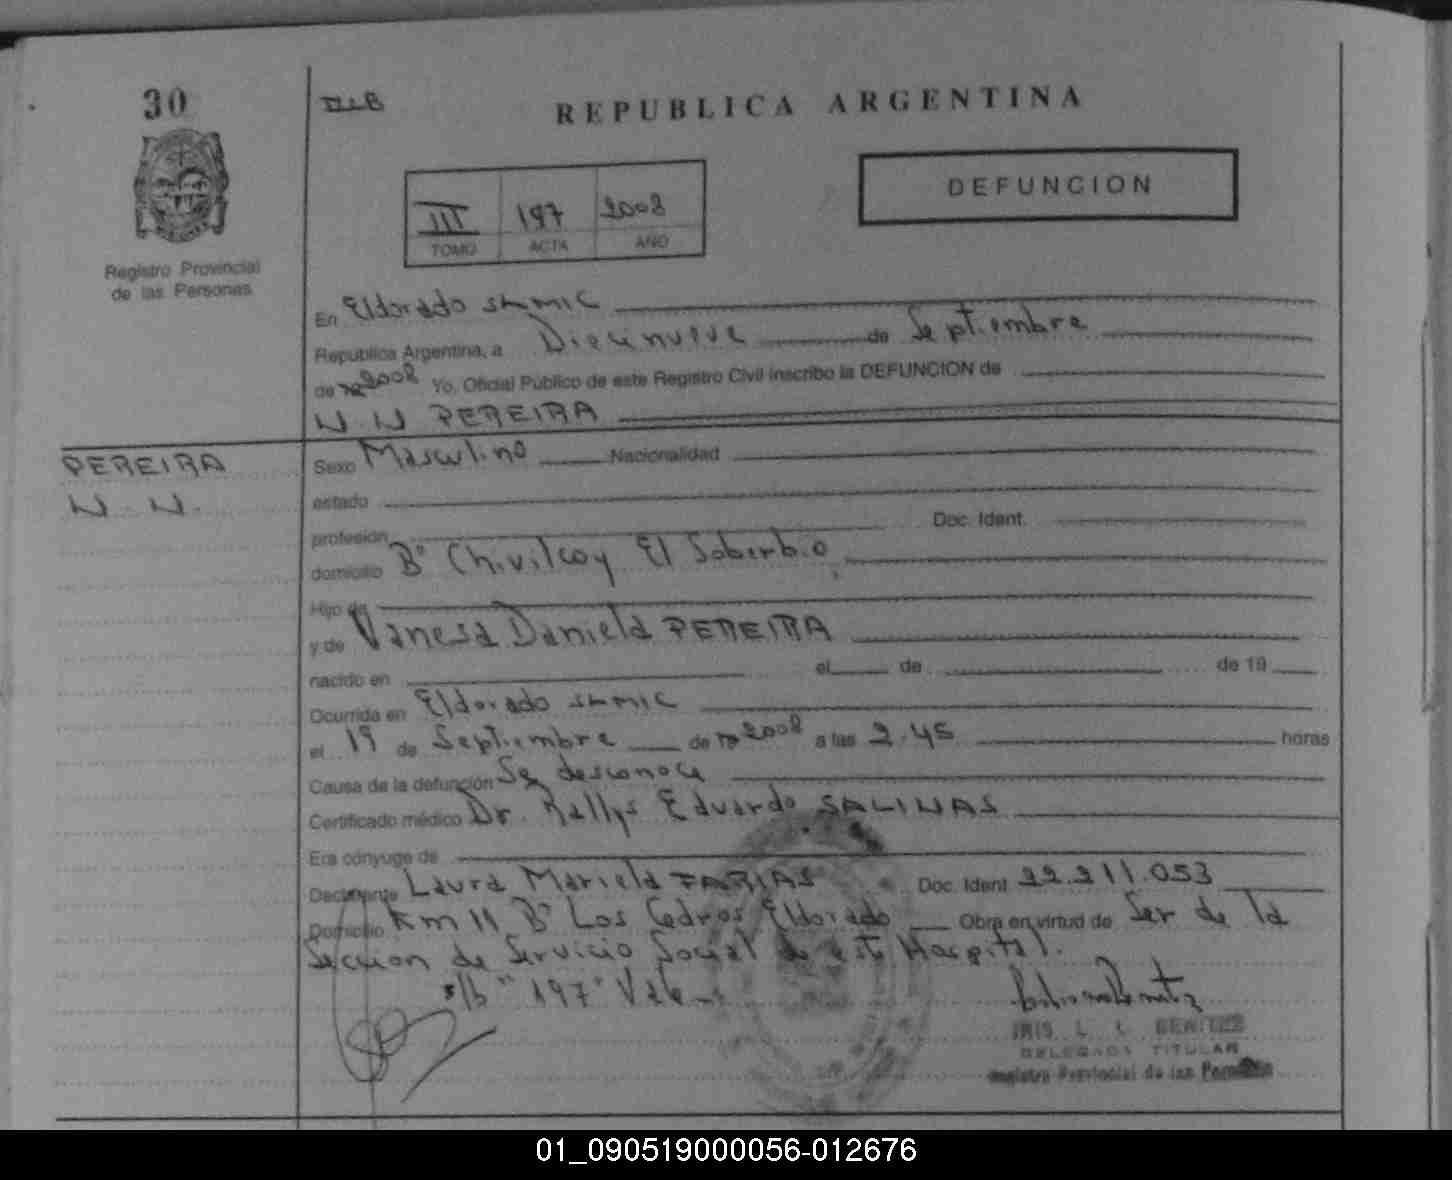 30
REPUBLICA ARGENTINA
DEFUNCION
III 197 2008
TOMO ACTA AÑO
Registro Provincial
de las Personas
En Eldorado SLMIC
Republica Argentina, a Diecinueve de Septiembre
de 2008 Yo, Oficial Público de este Registro Civil inscribo la DEFUNCION de
N.N PEREIRA
PEREIRA
N. N.
Sexo Masculino Nacionalidad
estado
profesión Doc. Ident.
domicilio B° Chivilcoy El Soberbio
Hijo de
y de Vanesa Daniela PEREIRA
nacido en el de de 19
Ocurrida en Eldorado SLMIC
el 19 de Septiembre de 2008 a las 2.45 horas
Causa de la defunción Se desconoce
Certificado médico Dr. Rallys Eduardo SALINAS
Era cónyuge de
Declarante Laura Mariela FARIAS Doc. Ident 22.211.053
Domicilio Km 11 B° Los Cedros Eldorado Obra en virtud de Ser de la
Seccion de Servicio Social de este Hospital.
s/b "197" Vale
IRIS L. BENITEZ
DELEGADA TITULAR
Registro Provincial de las Personas
01_090519000056-012676